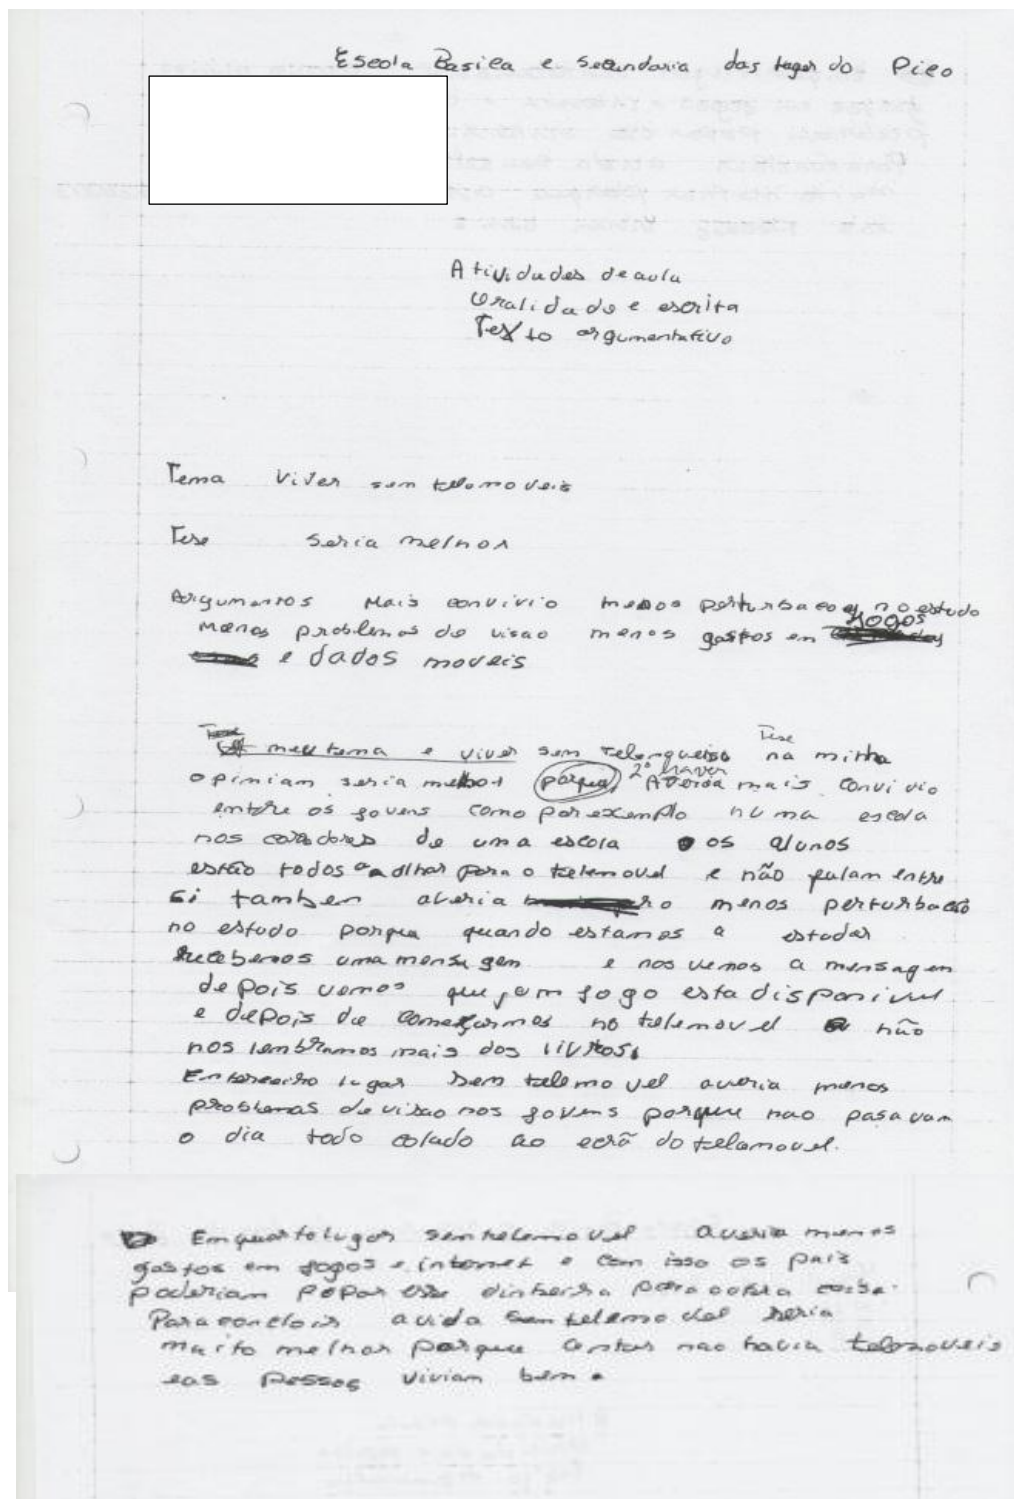 Escola Basica e secundaria das lages do Pico
Atividades de aula
Oralidade e escrita
Texto argumentativo
Tema Viver sem telemoveis
Tese seria melhor
Argumentos Mais convivio menos perturbacoes no estudo
jogos
Menos problemas de visao menos gastos em
e dados moveis
Tese
meu tema e viver sem na minha
opiniam seria melhor porque 2º haver Averia mais convivio
entre os jovens como por exemplo numa escola
nos coredores de uma escola os alunos
estão todos a olhar para o telemovel e não falam entre
si tambem averia menos perturbacão
no estudo porque quando estamos a estudar
recebemos uma mensagem e nos vemos a mensagem
depois vemos que jam jogo esta disponivel
e depois de começarmos no telemovel não
nos lembramos mais dos livros.
Em terceiro lugar sem telemovel averia menos
problemas de visao nos jovens porque nao pasavam
o dia todo colado ao ecrã do telemovel.
Em quarto lugar sem telemovel averia menos
gastos em jogos e internet e com isso os pais
poderiam popar esse dinheiro para outra coisa.
Para concloir a vida sem telemovel seria
muito melhor porque antes nao havia telemoveis
eas pessoas viviam bem.